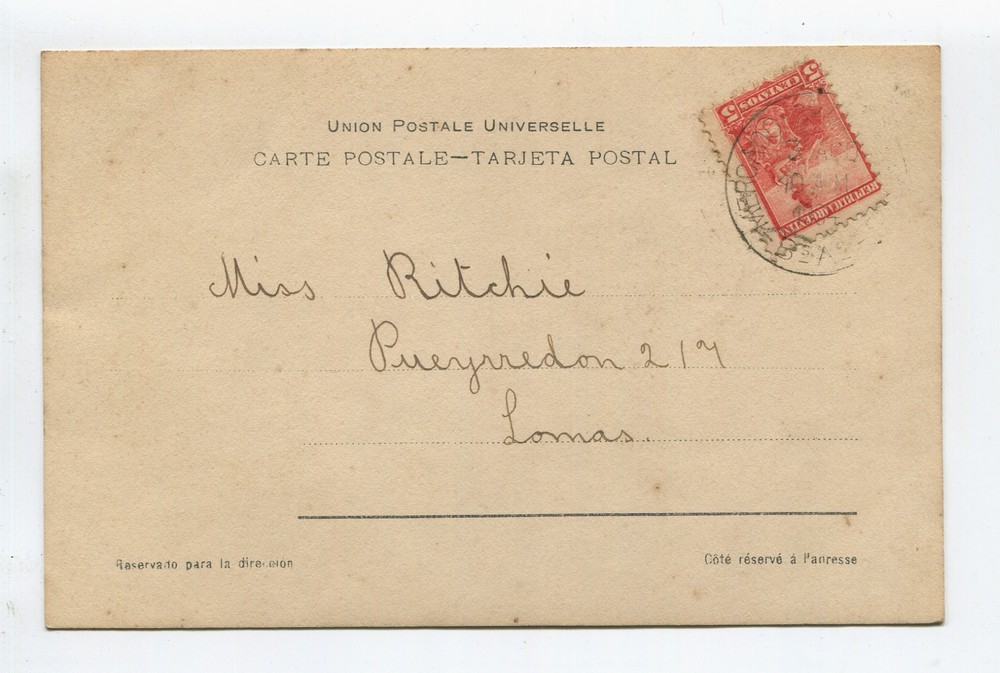 UNION POSTALE UNIVERSELLE
CARTE POSTALE—TARJETA POSTAL
5 CENTAVOS 5
REPUBLICA ARGENTINA
Bs As
Miss Ritchie
Pueyrredon 217
Lomas.
Reservado para la dirección
Côté réservé á l'adresse